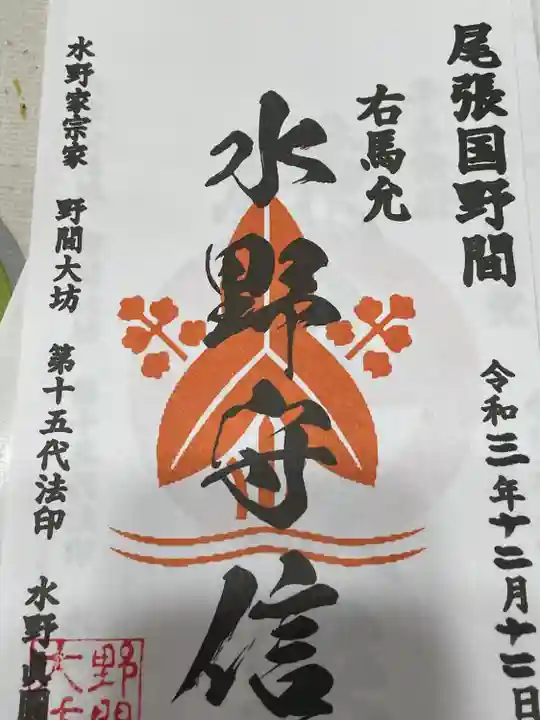 尾張国野間
令和三年十二月十二日
右馬允
水野守信
水野家宗家 野間大坊 第十五代法印 水野
野間
大